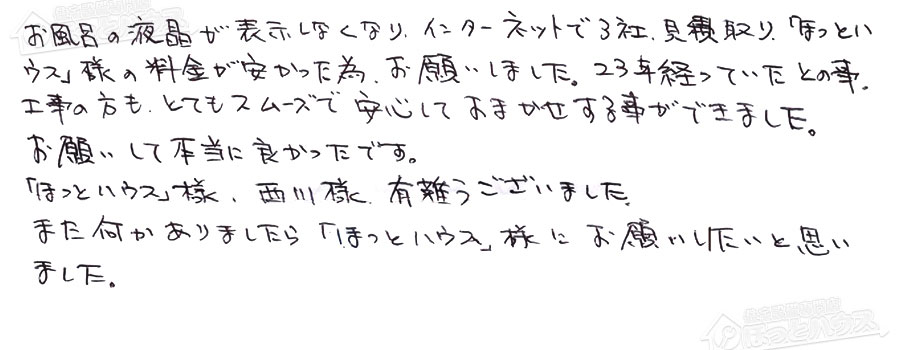 お風呂の液晶が表示しなくなり、インターネットで3社、見積取り、「ほっとハ
ウス」様の料金が安かった為、お願いしました。23年経っていたとの事、
工事の方も、とてもスムーズで安心しておまかせする事ができました。
お願いして本当に良かったです。
「ほっとハウス」様、西川様、有難うございました。
また何かありましたら「ほっとハウス」様にお願いしたいと思い
ました。
ほっとハウス